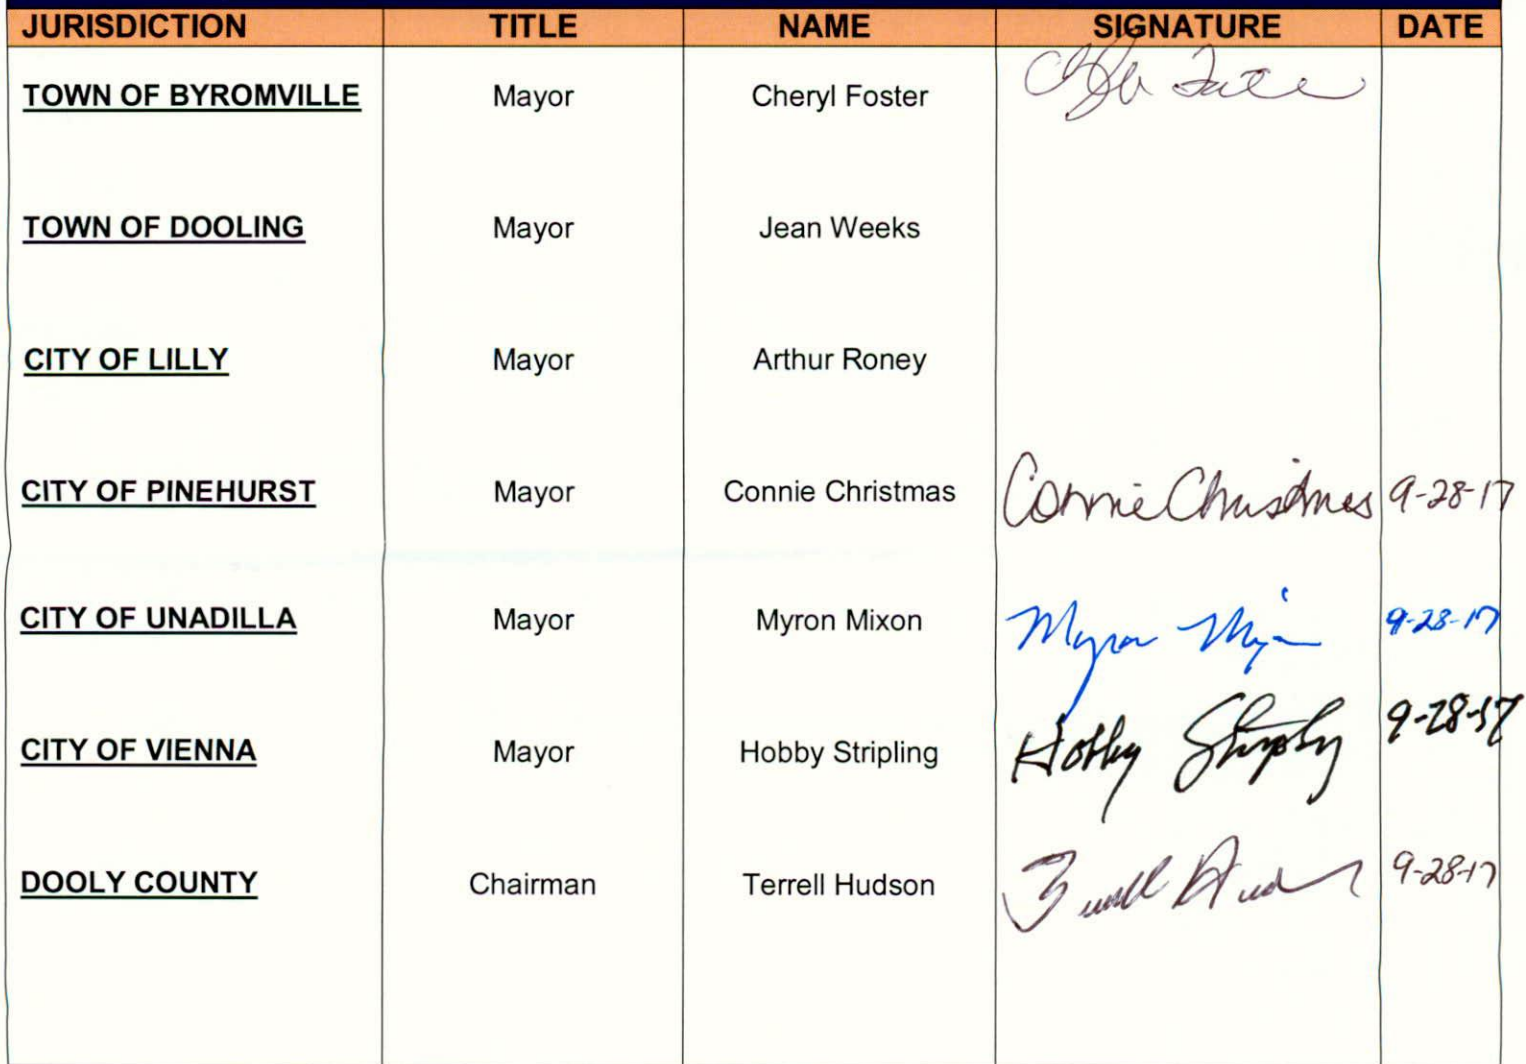 JURISDICTION TITLE NAME SIGNATURE DATE
TOWN OF BYROMVILLE Mayor Cheryl Foster
TOWN OF DOOLING Mayor Jean Weeks
CITY OF LILLY Mayor Arthur Roney
CITY OF PINEHURST Mayor Connie Christmas Connie Christmas 9-28-17
CITY OF UNADILLA Mayor Myron Mixon Myron Mixon 9-28-17
CITY OF VIENNA Mayor Hobby Stripling Hobby Stripling 9-28-17
DOOLY COUNTY Chairman Terrell Hudson Terrell Hudson 9-28-17